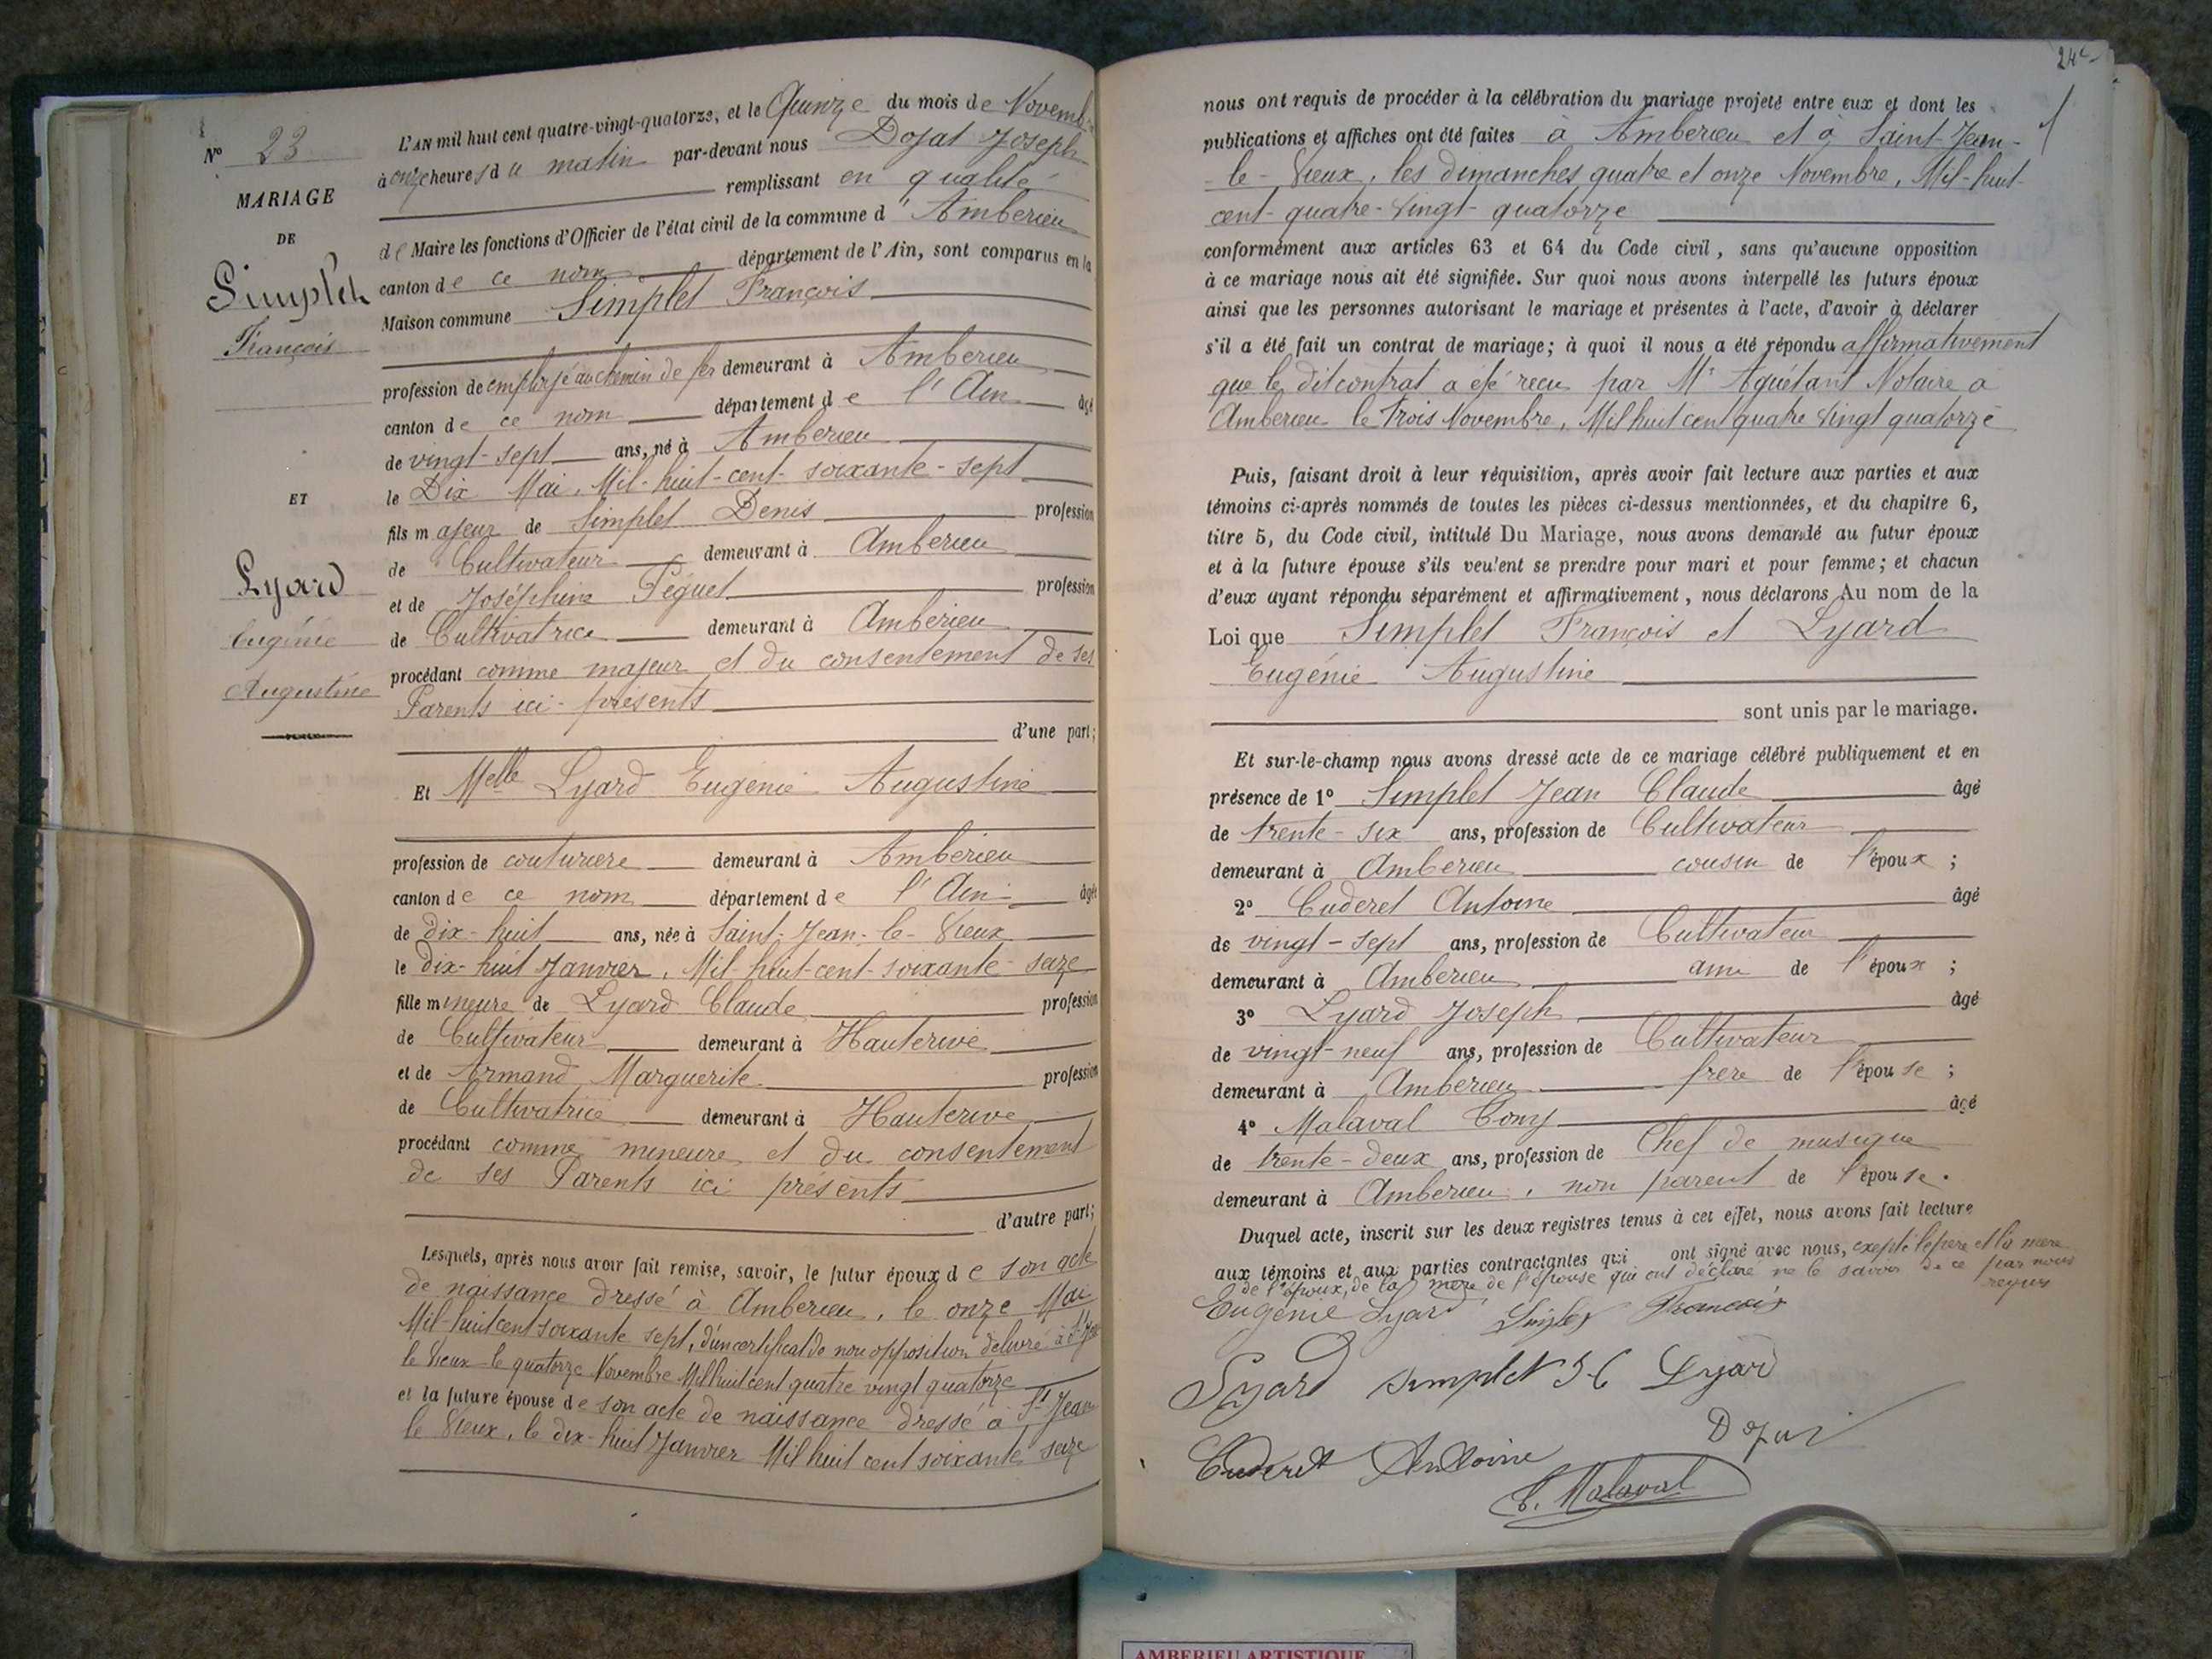 N° 23
MARIAGE
DE
Simplet
François
ET
Lyard
Eugénie
Augustine
L'AN mil huit cent quatre-vingt-quatorze, et le Quinze du mois de Novembre
à onze heures du matin par-devant nous Dojat Joseph
remplissant en qualité
de Maire les fonctions d'Officier de l'état civil de la commune d'Amberieu
canton de ce nom département de l'Ain, sont comparus en la
Maison commune Simplet François
profession de employé au chemin de fer demeurant à Amberieu
canton de ce nom département de l'Ain âgé
de vingt-sept ans, né à Amberieu
le Dix Mai, Mil-huit-cent-soixante-sept
fils majeur de Simplet Denis profession
de Cultivateur demeurant à Amberieu
et de Joséphine Péguet profession
de Cultivatrice demeurant à Amberieu
procédant comme majeur et du consentement de ses
Parents ici-présents
d'une part;
Et Melle Lyard Eugénie Augustine
profession de couturiere demeurant à Amberieu
canton de ce nom département de l'Ain âgée
de dix-huit ans, née à Saint-Jean-le-Vieux
le dix-huit Janvier, Mil-huit-cent-soixante-seize
fille mineure de Lyard Claude profession
de Cultivateur demeurant à Hauterive
et de Armand Marguerite profession
de Cultivatrice demeurant à Hauterive
procédant comme mineure et du consentement
de ses Parents ici présents
d'autre part;
Lesquels, après nous avoir fait remise, savoir, le futur époux de son acte
de naissance dressé à Amberieu, le onze Mai
Mil-huit cent soixante sept, d'un certificat de non opposition délivré à St Jean
le Vieux le quatorze Novembre Mil huit cent quatre vingt quatorze
et la future épouse de son acte de naissance dressé à St Jean
le Vieux, le dix-huit Janvier Mil huit cent soixante seize
24
nous ont requis de procéder à la célébration du mariage projeté entre eux et dont les
publications et affiches ont été faites à Amberieu et à Saint-Jean-
-le-Vieux, les dimanches quatre et onze Novembre, Mil-huit-
cent-quatre-vingt-quatorze
conformément aux articles 63 et 64 du Code civil, sans qu'aucune opposition
à ce mariage nous ait été signifiée. Sur quoi nous avons interpellé les futurs époux
ainsi que les personnes autorisant le mariage et présentes à l'acte, d'avoir à déclarer
s'il a été fait un contrat de mariage; à quoi il nous a été répondu affirmativement
que le dit contrat a été reçu par Mr Aguétant Notaire a
Amberieu le trois Novembre, Mil huit cent quatre vingt quatorze
Puis, faisant droit à leur réquisition, après avoir fait lecture aux parties et aux
témoins ci-après nommés de toutes les pièces ci-dessus mentionnées, et du chapitre 6,
titre 5, du Code civil, intitulé Du Mariage, nous avons demandé au futur époux
et à la future épouse s'ils veulent se prendre pour mari et pour femme; et chacun
d'eux ayant répondu séparément et affirmativement, nous déclarons Au nom de la
Loi que Simplet François et Lyard
Eugénie Augustine
sont unis par le mariage.
Et sur-le-champ nous avons dressé acte de ce mariage célébré publiquement et en
présence de 1° Simplet Jean Claude âgé
de trente-six ans, profession de Cultivateur
demeurant à Amberieu cousin de l'époux;
2° Cuderet Antoine âgé
de vingt-sept ans, profession de Cultivateur
demeurant à Amberieu ami de l'époux;
3° Lyard Joseph âgé
de vingt-neuf ans, profession de Cultivateur
demeurant à Amberieu frere de l'épouse;
4° Malaval Tony âgé
de trente-deux ans, profession de Chef de musique
demeurant à Amberieu, non parent de l'épouse.
Duquel acte, inscrit sur les deux registres tenus à cet effet, nous avons fait lecture
aux témoins et aux parties contractantes qui ont signé avec nous, exepté le père et la mere
de l'époux, de la mère de l'épouse qui ont déclaré ne le savoir de ce par nous
requis
Eugénie Lyard Simplet François
Lyard Simplet J C Lyard
Dojat
Cuderet Antoine
T. Malaval
AMBERIEU ARTISTIQUE